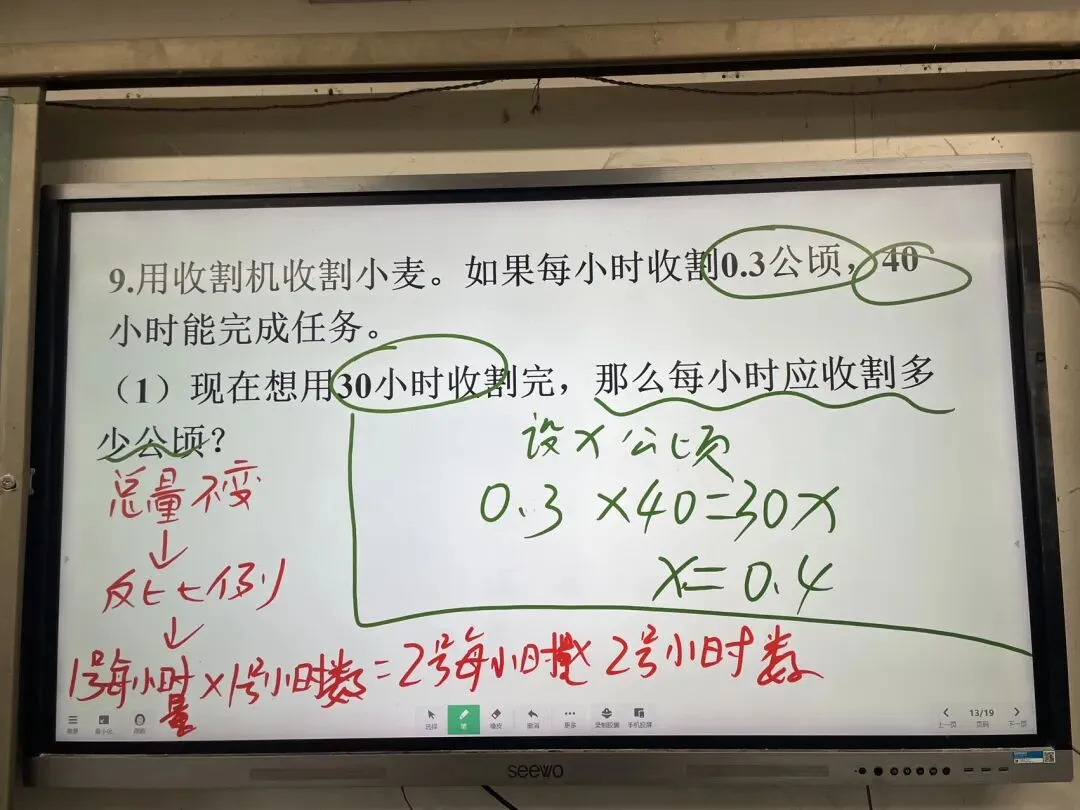 9.用收割机收割小麦。如果每小时收割0.3公顷，40
小时能完成任务。
（1）现在想用30小时收割完，那么每小时应收割多
少公顷？
设x公顷
0.3×40=30x
x=0.4
总量不变
↓
反比例
↓
1号每小时量×1号小时数=2号每小时量×2号小时数
选择
笔
橡皮
撤消
更多
13/19
上一页
页码
下一页
seewo